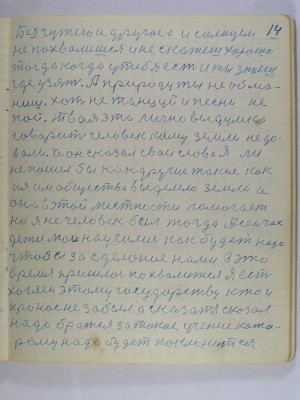 14
Без чужого и другого и солнцем
не похвалишся и не скажеш хорошо
тогда когда у тибя ест и ты знаиш
где узят. А природу ты не обма-
ниш. хот не танцуй и песни не
пой. Твая эта лично выдумка
говорит человек кому земли не до-
вали. а он сказал сваи слова Я ли
не пошел бы как другие такое как
им общество выделело земла а
она в этой местности помагает
но я не человек был тогда А сейчас
дети мои научились как будет надо
чтобы за сделоное нами в это
время пришлос похвалится Я ест
хозяен этому государству кто и
про нос не забыл а сказатя сказал
надо братся за такое учение кото-
рому надо будет поклонится